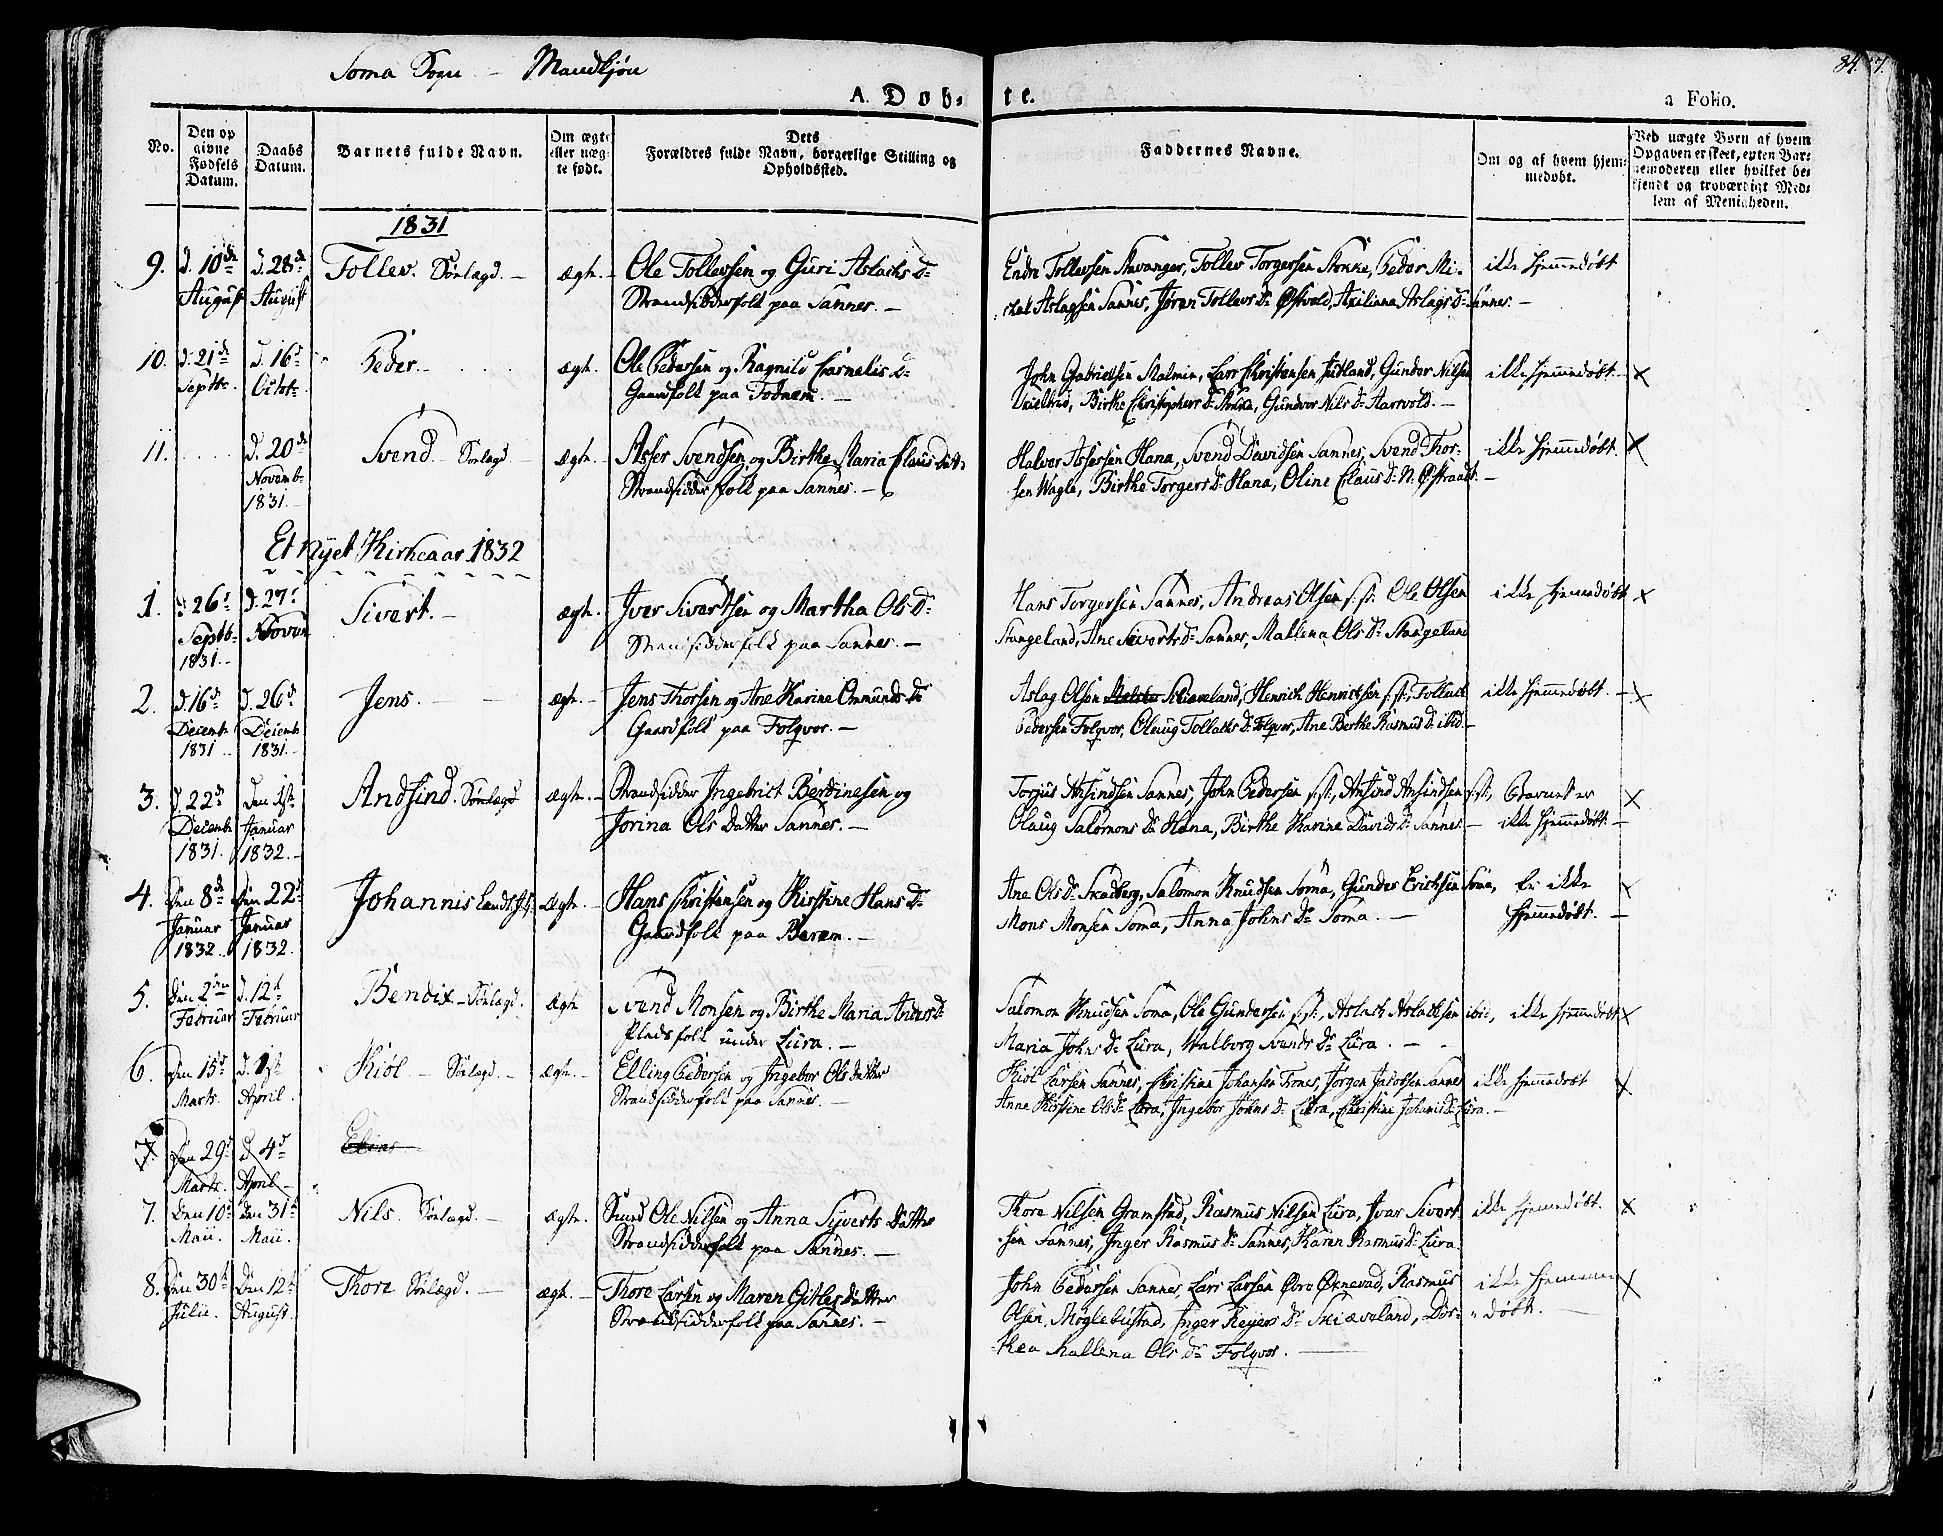 Soma Sogn - Mandkjøn
84. 7.
A. Døb-te.
a Folio.
No.
Den op
givne
Fødsels
Datum.
Daabs
Datum.
Barnets fulde Navn.
Om ægte
eller uæg-
te født.
Dets
Forældres fulde Navn, borgerlige Stilling og
Opholdssted.
Faddernes Navne.
Om og af hvem hjem-
medøbt.
Ved uægte Børn af hvem
Opgaven er skeet, enten Bar-
nemoderen eller hvilket be-
kjendt og troværdigt Med-
lem af Menigheden.
1831
9. d. 10de August d. 28de August Tollev. Sønlagd. - ægte. - Ole Tollevsen og Guri Aslacks Dr
Strandsidderfolk paa Sannes. -
Endre Tollevsen Stavanger, Tollev Torgersen Stokke, Peder Mi-
chal Aslagsen Sannes, Jøran Tollevs Dr Østvold, Axeliana Aslags Dr Sannes. -
ikke hjemmedøbt
10. d. 21de Septbr. d. 16d Octobr. Peder. - ægte. Ole Pedersen og Ragnild Cornelis Dr
Gaardfolk paa Fodnem. -
John Gabrielsen Malmin, Lars Christensen Judland, Gunder Nilsen
Skielbred, Birthe Christophers Dr Stokka, Gundvor Nils Dr Aarrvold. -
ikke hjemmedøbt. - x
11. d. 20de Novemb. 1831. - Svend Sønlagd - Ægte. - Asser Svendsen og Birthe Maria Claus datt.
Strandsidderfolk paa Sannes. -
Halvor Assersen Hana, Svend Davidsen Sannes, Svend Thor-
sen Wagle, Birthe Torgers Dr Hana, Oline Claus Dr N. Østraadt. -
ikke hjemmedøbt. x
Et nyet Kirkeaar 1832
1. d. 26d Septb. 1831. - d. 27d Novem Sivert. - ægte. Iver Sivertsen og Martha Ols Dr
Strandsidderfolk paa Sannes. -
Hans Torgersen Sannes, Andreas Olsen s. st. Ole Olsen
Stangeland, Ane Siverts Dr Sannes, Mallina Ols Dr Stangeland
ikke hjemmedøbt x
2. d. 16de Decemb 1831 d. 26d Decemb 1831. - Jens. - ægte. - Jens Thorsen og Ane Karine Ommunds Dr
Gaardfolk paa Folqvor. -
Aslag Olsen Skiæveland, Henrich Henrichsen s. st., Tollack
Pedersen Folqvor, Olaug Tollacks Dr Folqvor, Ane Berthe Rasmus Dr ibid. -
ikke hjemmedøbt. - x
3. d. 22de Decemb 1831. Den 1ste Januar 1832. - Andsind. Sønlagd ægte. - Strandsidder Ingebrict Berdinesen og
Jorina Ols Datter Sannes. -
Torjus Ansindsen Sannes, John Pedersen s. st., Ansind Ansindsen s. st.,
Olaug Salomons Dr Hana, Birthe Karine Davids Dr Sannes -
Barnet er
ikke hjemmedøbt. - x
4. Den 8de Januar 1832 Den 22d Januar 1832. Johannis Ægte. - Hans Christensen og Kirstine Hans Dr
Gaardfolk paa Bærem. -
Ane Ols Dr Skadberg, Salomon Knudsen Soma, Gunder Erichsen Soma,
Mons Monsen Soma, Anna Johns Dr Soma. -
Er ikke
hjemmedøbt. - x
5. Den 2den Februar d. 12t Februar Bendix - Sønlagd. ægte Svend Monsen og Birthe Maria Anders Dr
Pladsfolk under Lura. -
Salomon Knudsen Soma, Ole Gundersen s. st., Aslack Aslacksen ibid,
Maria Johns Dr Lura, Walborg Svends Dr Lura. -
ikke hjemmedøbt x
6. Den 15d Marts. d. 1ste April. Kiøl - Sønlagd. - ægte. - Elling Pedersen og Ingebor Ols datter
Strandsidderfolk paa Sannes. -
Kiøl Larsen Sannes, Christian Johansen Trones, Jørgen Jacobsen Sannes
Anne Kirstine Ols Dr Lura, Ingebor Johns D. Lura, Christine Johanis Dr Lura. -
ikke hjemmedøbt x
7. Den 29d Marts. d. 4d April - Elias
7. Den 10d Maii. Den 31t Maii. Nils. Sønlagd. - ægte. Ole Nilsen og Anna Syverts Datter
Strandsidderfolk paa Sannes. -
Thore Nilsen Gramstad, Rasmus Nilsen Lura, Ivar Sivert-
sen Sannes, Inger Rasmus Dr Sannes, Karen Rasmus Dr Lura.
ikke hjemmedøbt. x
8. Den 30t Julii. Den 12t August. Thore Sønlægd. - ægte. - Thore Larsen og Maren Gitles Datter
Strandsidderfolk paa Sannes. -
John Pedersen Sannes, Lars Larsen Øvre Øxnevad, Rasmus
Olsen Møglebustad, Inger Reiers Dr Skiæveland, Dor-
thea Mallena Ols Dr Folqvor. -
ikke hjemme
døbt. - x